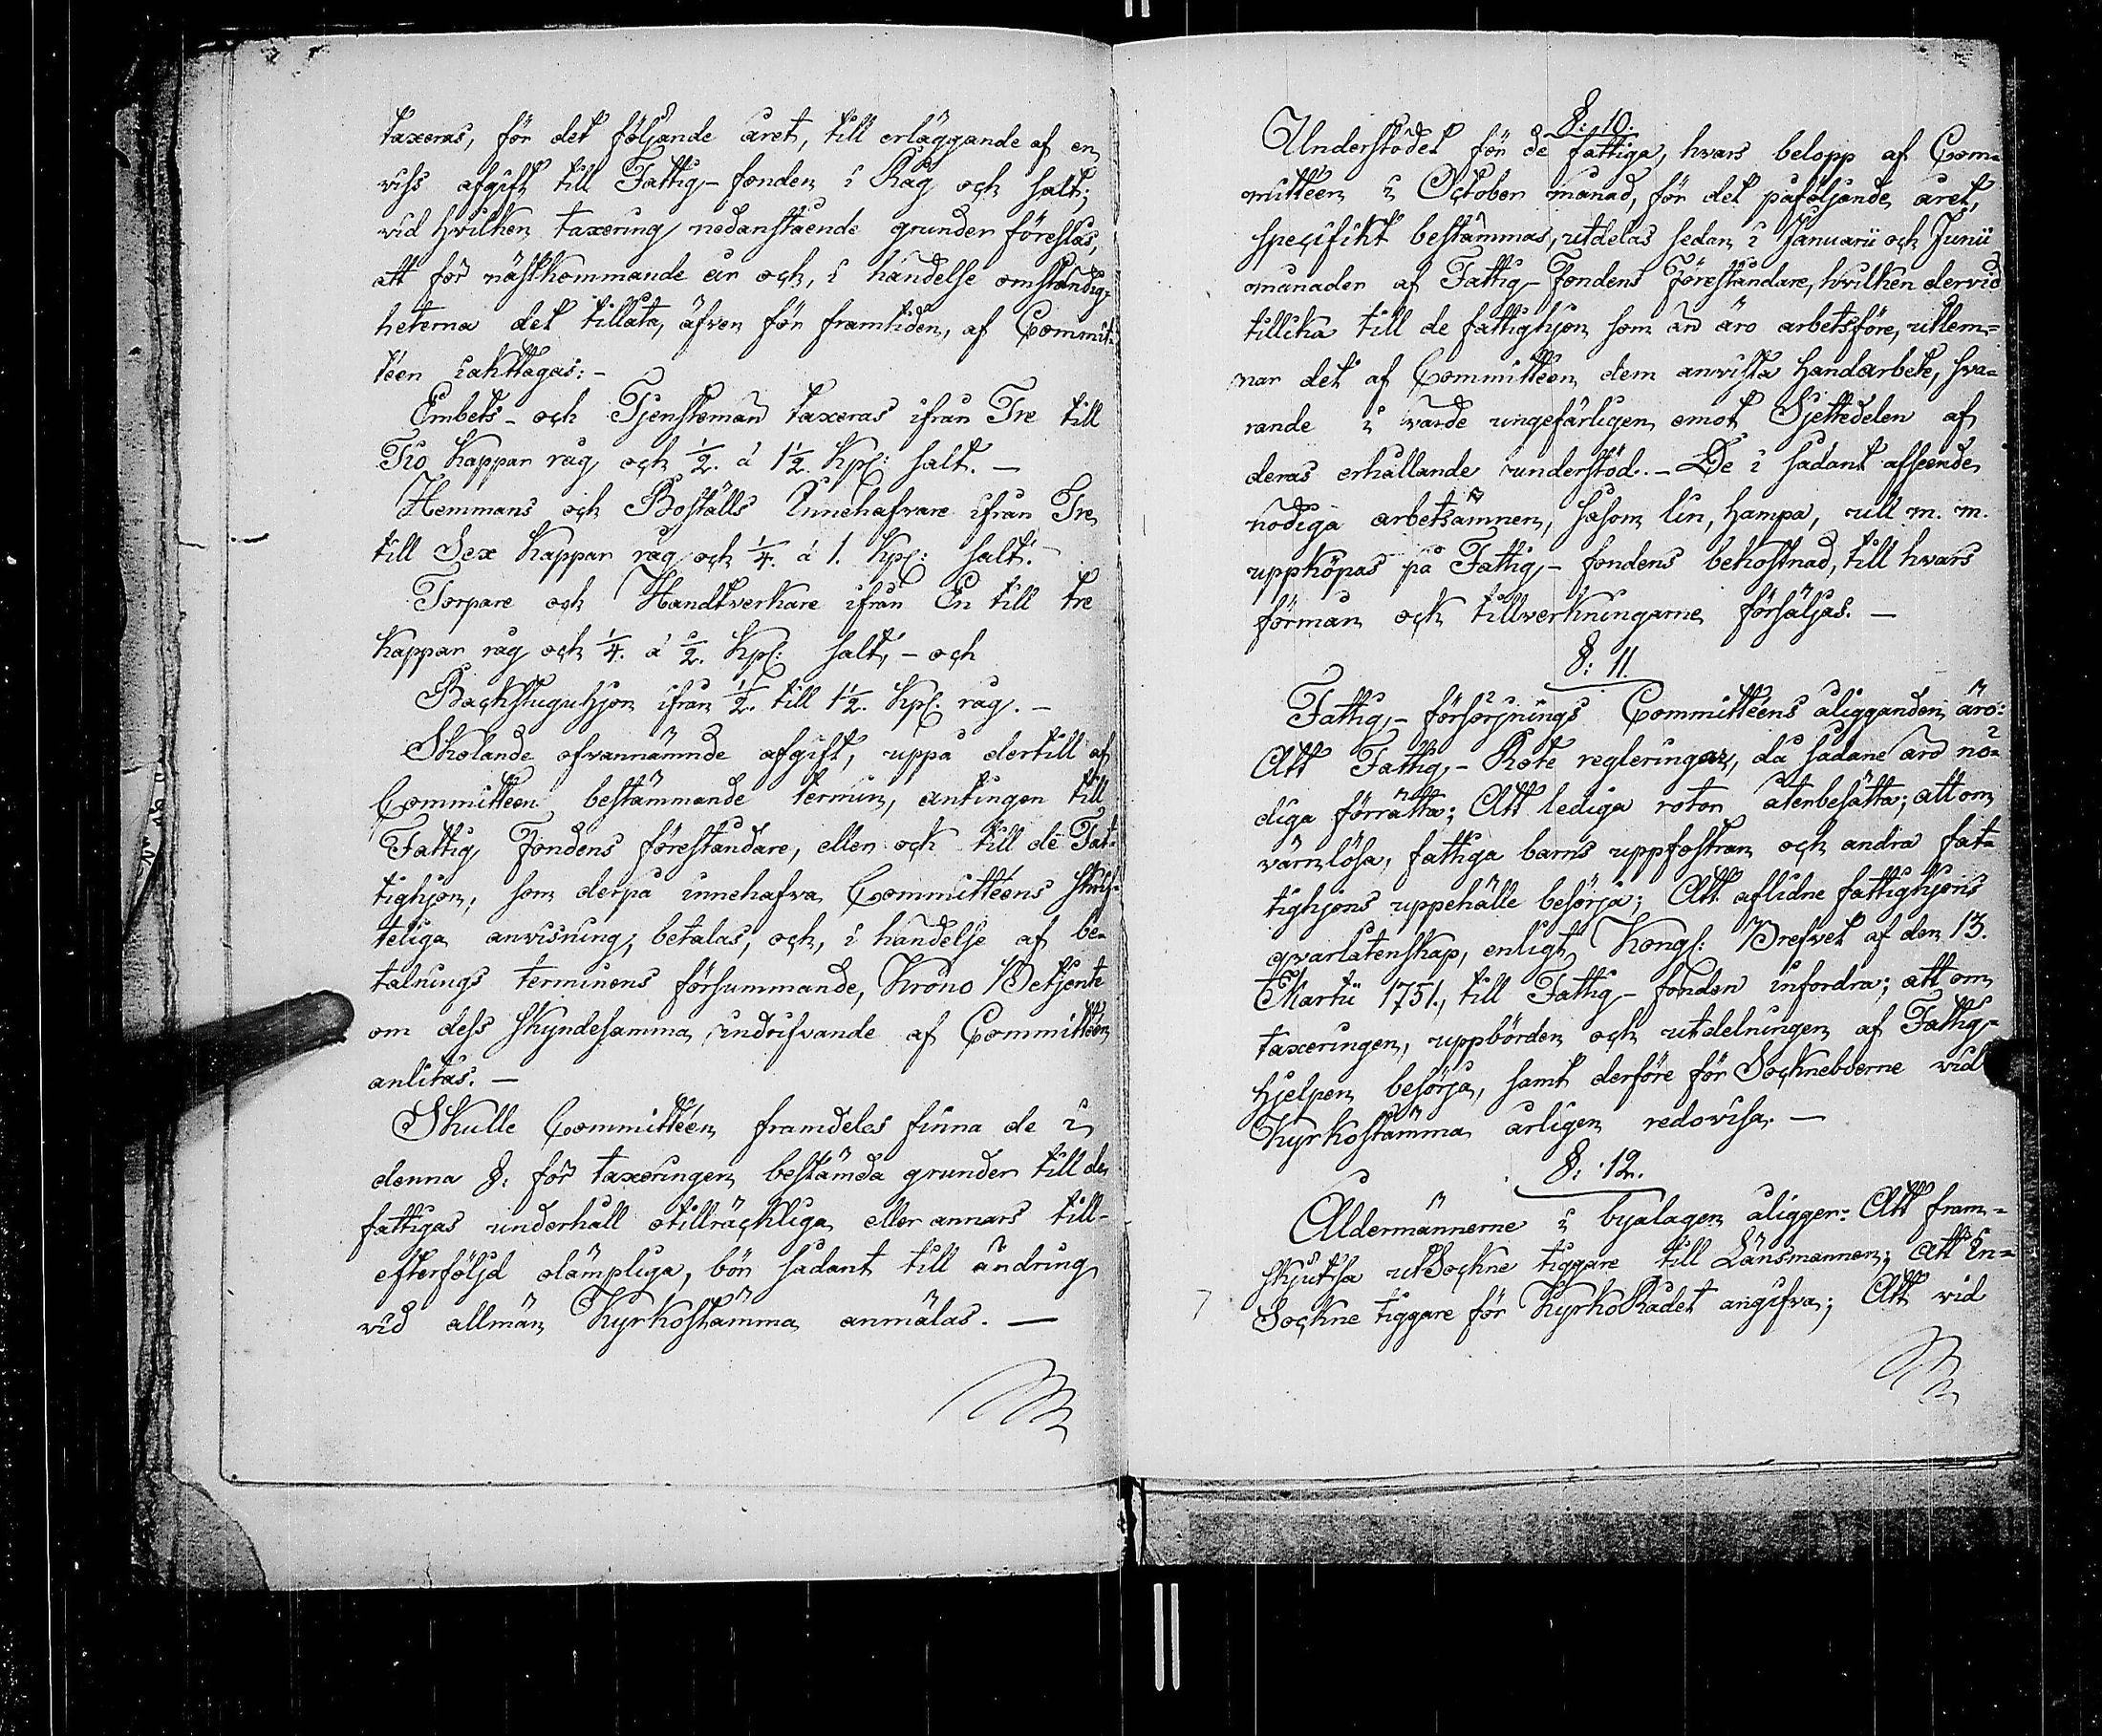 taxeras, för det följande året, till erläggande af en
viss afgift till Fattig-fonden i Råg och salt;
vid hvilken taxering nedanstående grunder föreslås,
att för nästkommande år och, i händelse omständig-
heterna det tillåta, äfven för framtiden, af Commit-
téen iakttagas:-
Embets- och Tjensteman taxeras ifrån Tre till
Tio Kappar råg och ½. á 1½. Kpr: salt. -
Hemmans och Boställs Innehafvare ifrån Tre
till Sex Kappar råg och ¼. á 1. Kpr: salt. -
Torpare och Handtverkare ifrån En till tre
Kappar råg och ¼. á ½. Kpr: salt, - och
Backstuguhjon ifrån ½. till 1½. Kpr. råg. -
Skolande ofvannämnde afgift, uppå dertill af
Committeen bestämmande termin, antingen till
Fattig Fondens föreståndare, eller och till de Fat-
tighjon, som derpå innehafva Committéens skrif-
teliga anvisning, betalas, och, i händelse af be-
talnings terminens försummande, Krono Betjente
om dess skyndesamma indrifvande af Committéen
anlitas. -
Skulle Committéen framdeles finna de i
denna §: för taxeringen bestämda grunder till de
fattigas underhåll otillräckliga eller annars till-
efterföljd olämpliga, bör sådant till ändring
vid allmän Kyrkostämma anmälas. -
§: 10:
Understödet för de fattiga, hvars belopp af Com-
mittéen i October månad, för det påföljande året,
specifikt bestämmas, utdelas sedan i Januarii och Junii
månader af Fattig-Fondens Föreståndare, hvilken dervid
tillika till de fattighjon som än äro arbetsföre, utlem-
nar det af Committéen dem anvista handarbete, sva-
rande i värde ungefärligen emot Sjettedelen af
deras erhållande understöd. - De i sådant afseende
nödiga arbetsämnen, såsom lin, hampa, ull m. m.
uppköpas på Fattig-fondens bekostnad, till hvars
förmån och tillverkningarne försäljas. -
§: 11.
Fattig-försörjnings Committéens åligganden äro:
Att Fattig-Rote regleringar, då sådane äro nö-
diga förrätta; Att lediga rotor återbesätta; att om
värnlösa, fattiga barns uppfostran och andra fat-
tighjons uppehälle besörja; Att aflidne fattighjons
qvarlåtenskap, enligt Kongl: Brefvet af den 13.
Martii 1751., till Fattig-fonden infordra; att om
taxeringen, uppbörden och utdelningen af Fattig-
hjelpen besörja, samt derföre för Sockneboerne vid
Kyrkostämma årligen redovisa. -
§: 12.
Åldermännerne i byalagen åligger: Att fram-
skjutsa utSockne tiggare till Länsmannen; att In-
Sockne tiggare för KyrkoRådet angifva; Att vid